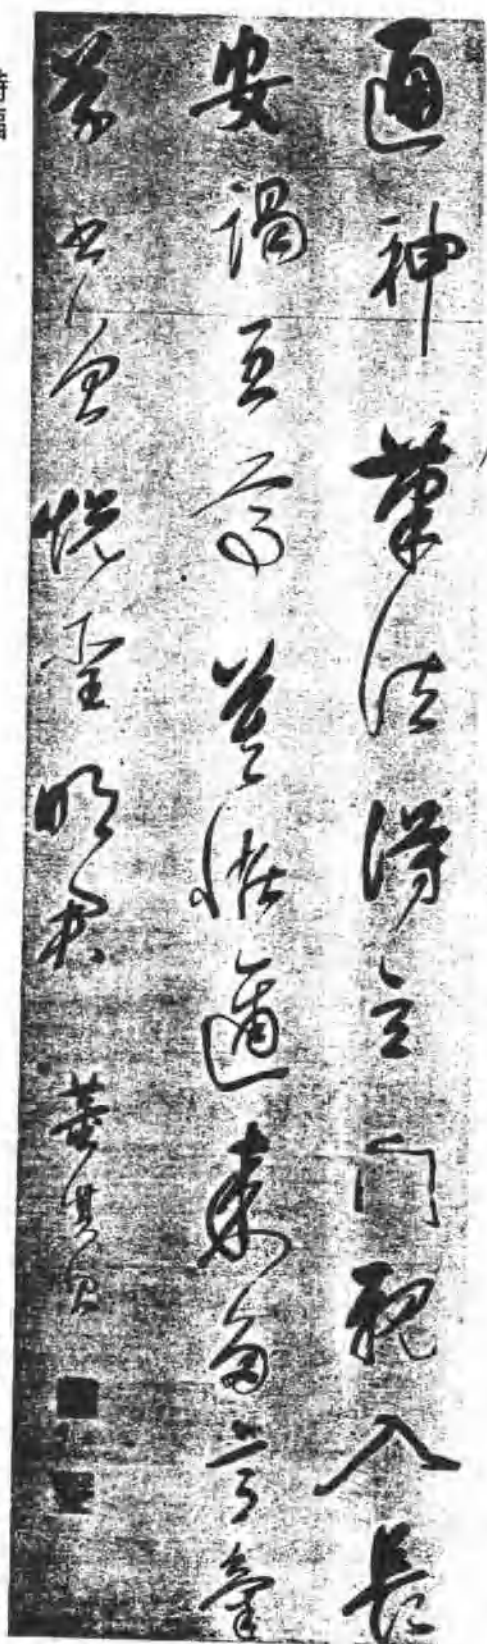 通神筆法得玄門親入長
安謁至尊莫怪邇來多意氣
草書曾悅聖明君 董其昌